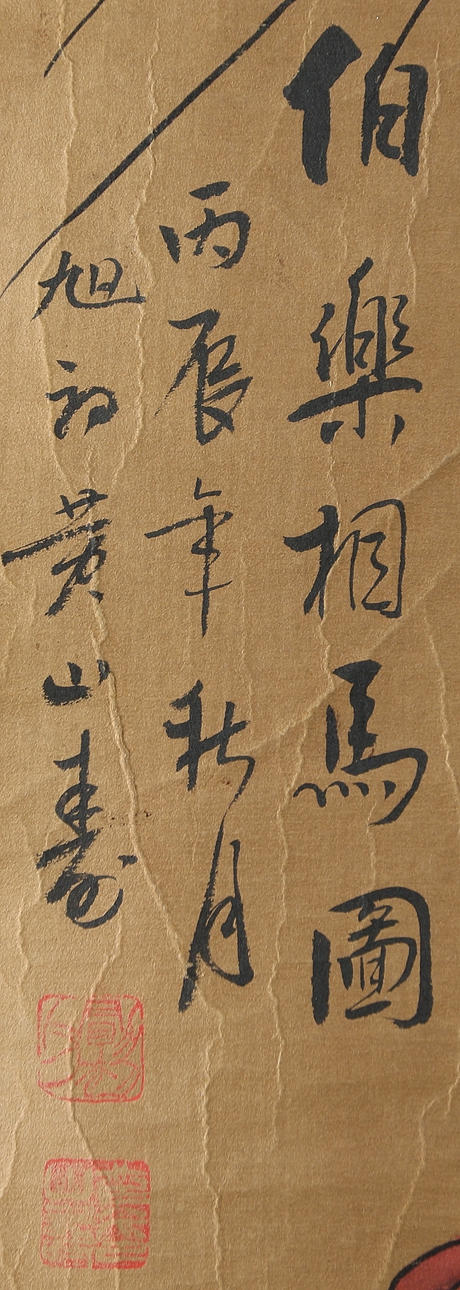 伯樂相馬圖
丙辰年秋月
旭初黃山壽